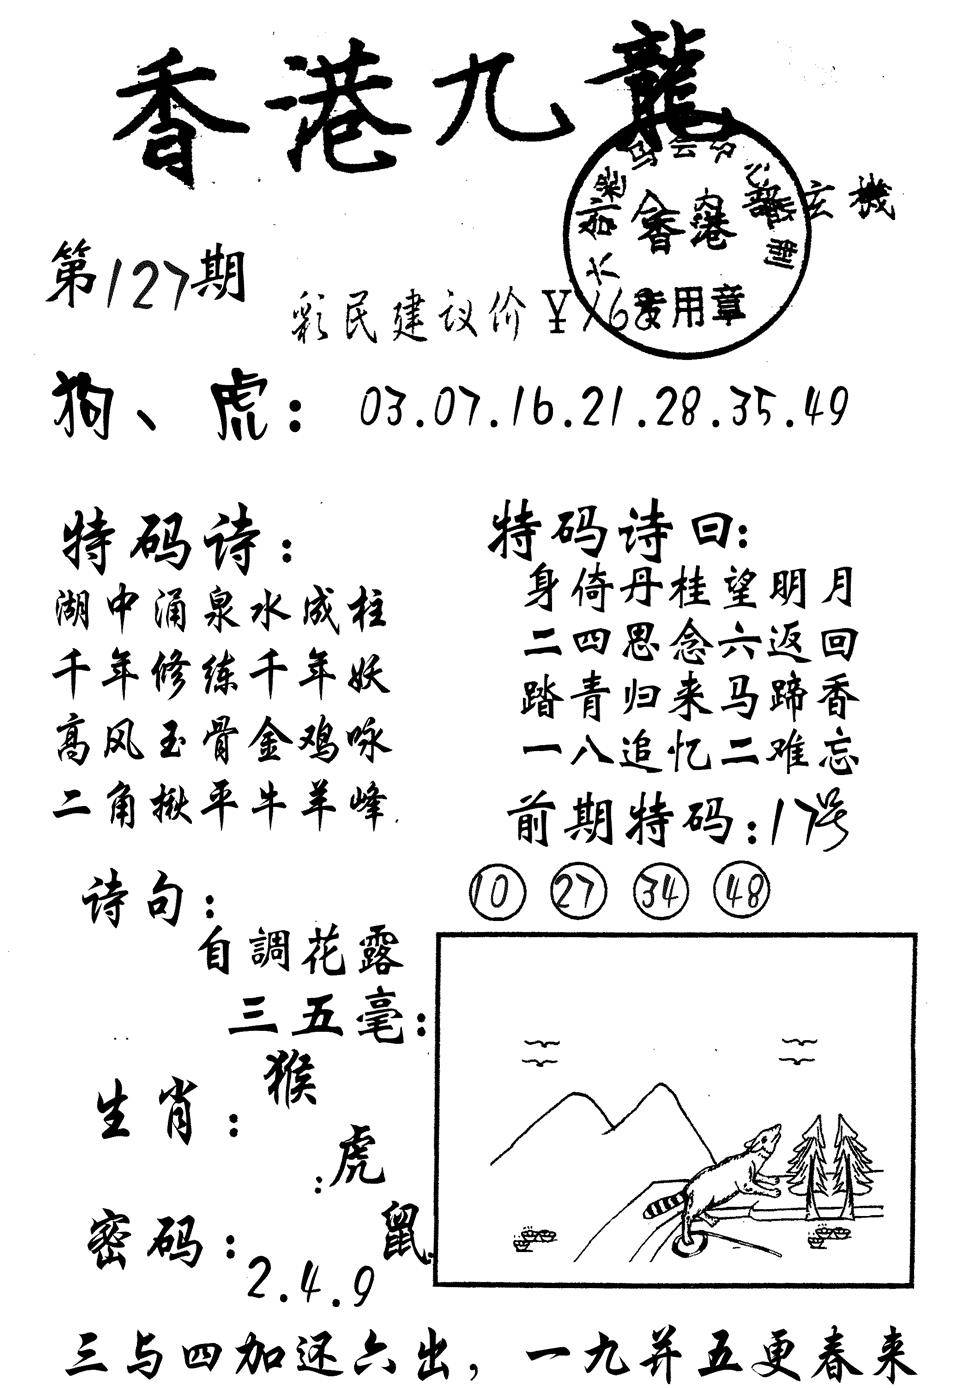 香港九龍
玄機
第127期
彩民建议价¥168
香港
专用章
狗、虎：03.07.16.21.28.35.49
特码诗：
湖中涌泉水成柱
千年修练千年妖
高风玉骨金鸡咏
二角揪平牛羊峰
特码诗曰：
身倚丹桂望明月
二四思念六返回
踏青归来马蹄香
一八追忆二难忘
前期特码：17号
10 27 34 48
诗句：
自調花露
三五毫：
生肖：
猴
虎
鼠
密码：
2.4.9
三与四加还六出，一九并五更春来